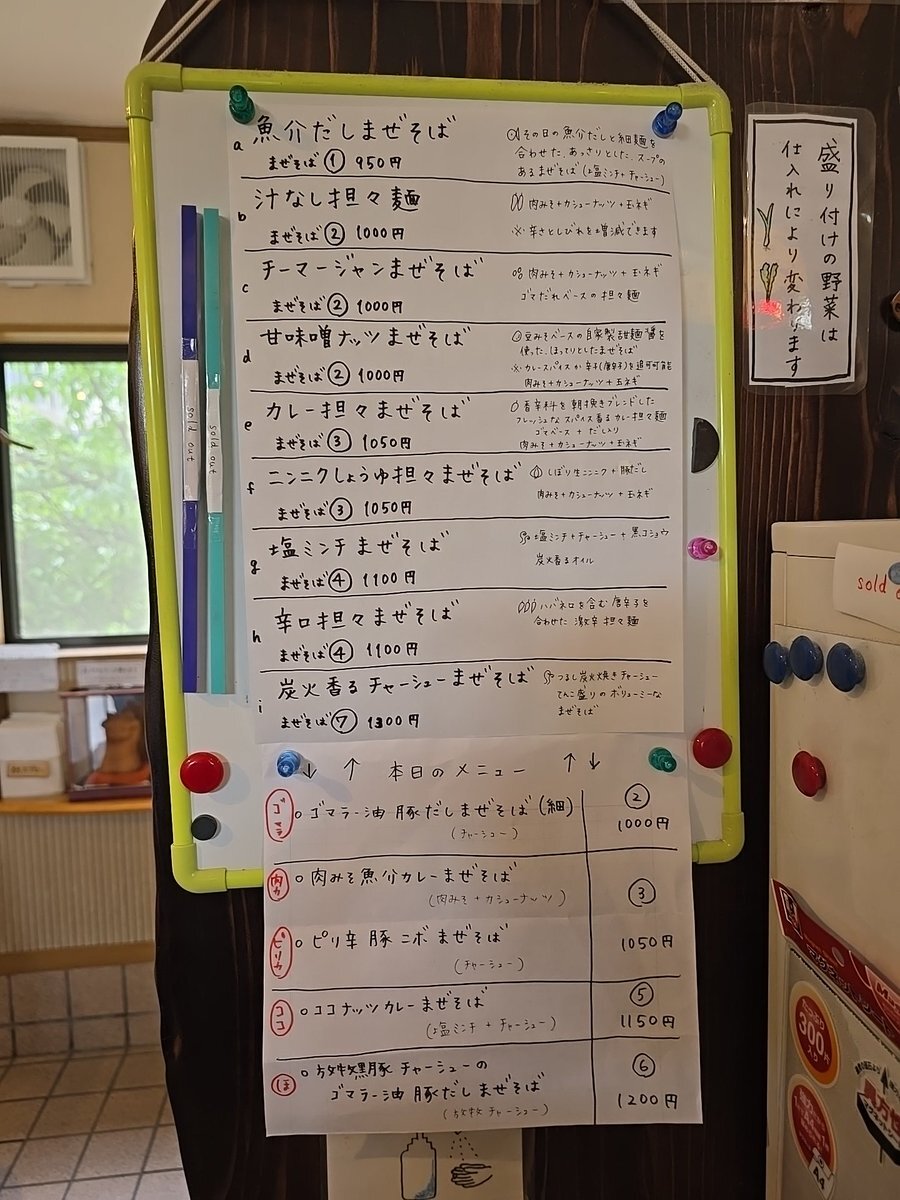 a 魚介だしまぜそば
まぜそば ① 950円
その日の魚介だしと細麺を
合わせた、あっさりとした、スープの
あるまぜそば (塩ミンチ+チャーシュー)
b 汁なし担々麺
まぜそば ② 1000円
肉みそ+カシューナッツ+玉ネギ
※辛さとしびれを増減できます
c チーマージャンまぜそば
まぜそば ② 1000円
肉みそ+カシューナッツ+玉ネギ
ゴマだれベースの担々麺
d 甘味噌ナッツまぜそば
まぜそば ② 1000円
豆みそベースの自家製甜麺醤を
使った、ほってりとしたまぜそば
※カレースパイスか辛子(唐辛子)を追可可能
肉みそ+カシューナッツ+玉ネギ
e カレー担々まぜそば
まぜそば ③ 1050円
香辛料を朝挽きブレンドした
フレッシュなスパイス香るカレー担々麺
ゴマベース + だし入り
肉みそ+カシューナッツ+玉ネギ
f ニンニクしょうゆ担々まぜそば
まぜそば ③ 1050円
しぼり生ニンニク+豚だし
肉みそ+カシューナッツ+玉ネギ
g 塩ミンチまぜそば
まぜそば ④ 1100円
塩ミンチ+チャーシュー+黒コショウ
炭火香るオイル
h 辛口担々まぜそば
まぜそば ④ 1100円
ハバネロを含む唐辛子を
合わせた激辛担々麺
i 炭火香るチャーシューまぜそば
まぜそば ⑦ 1300円
つるし炭火焼きチャーシュー
てんこ盛りのボリューミーな
まぜそば
↓ ↑ 本日のメニュー ↑ ↓
ゴマラ ○ゴマラー油 豚だしまぜそば(細)
(チャーシュー)
② 1000円
肉カ ○肉みそ魚介カレーまぜそば
(肉みそ+カシューナッツ)
③
ピリウ ○ピリ辛 豚ニボまぜそば
(チャーシュー)
1050円
ココ ○ココナッツカレーまぜそば
(塩ミンチ + チャーシュー)
⑤ 1150円
ほ ○放牧黒豚チャーシューの
ゴマラー油 豚だしまぜそば
(放牧チャーシュー)
⑥ 1200円
sold out
sold out
盛り付けの野菜は
仕入れにより変わります
sold
300
入り
A4